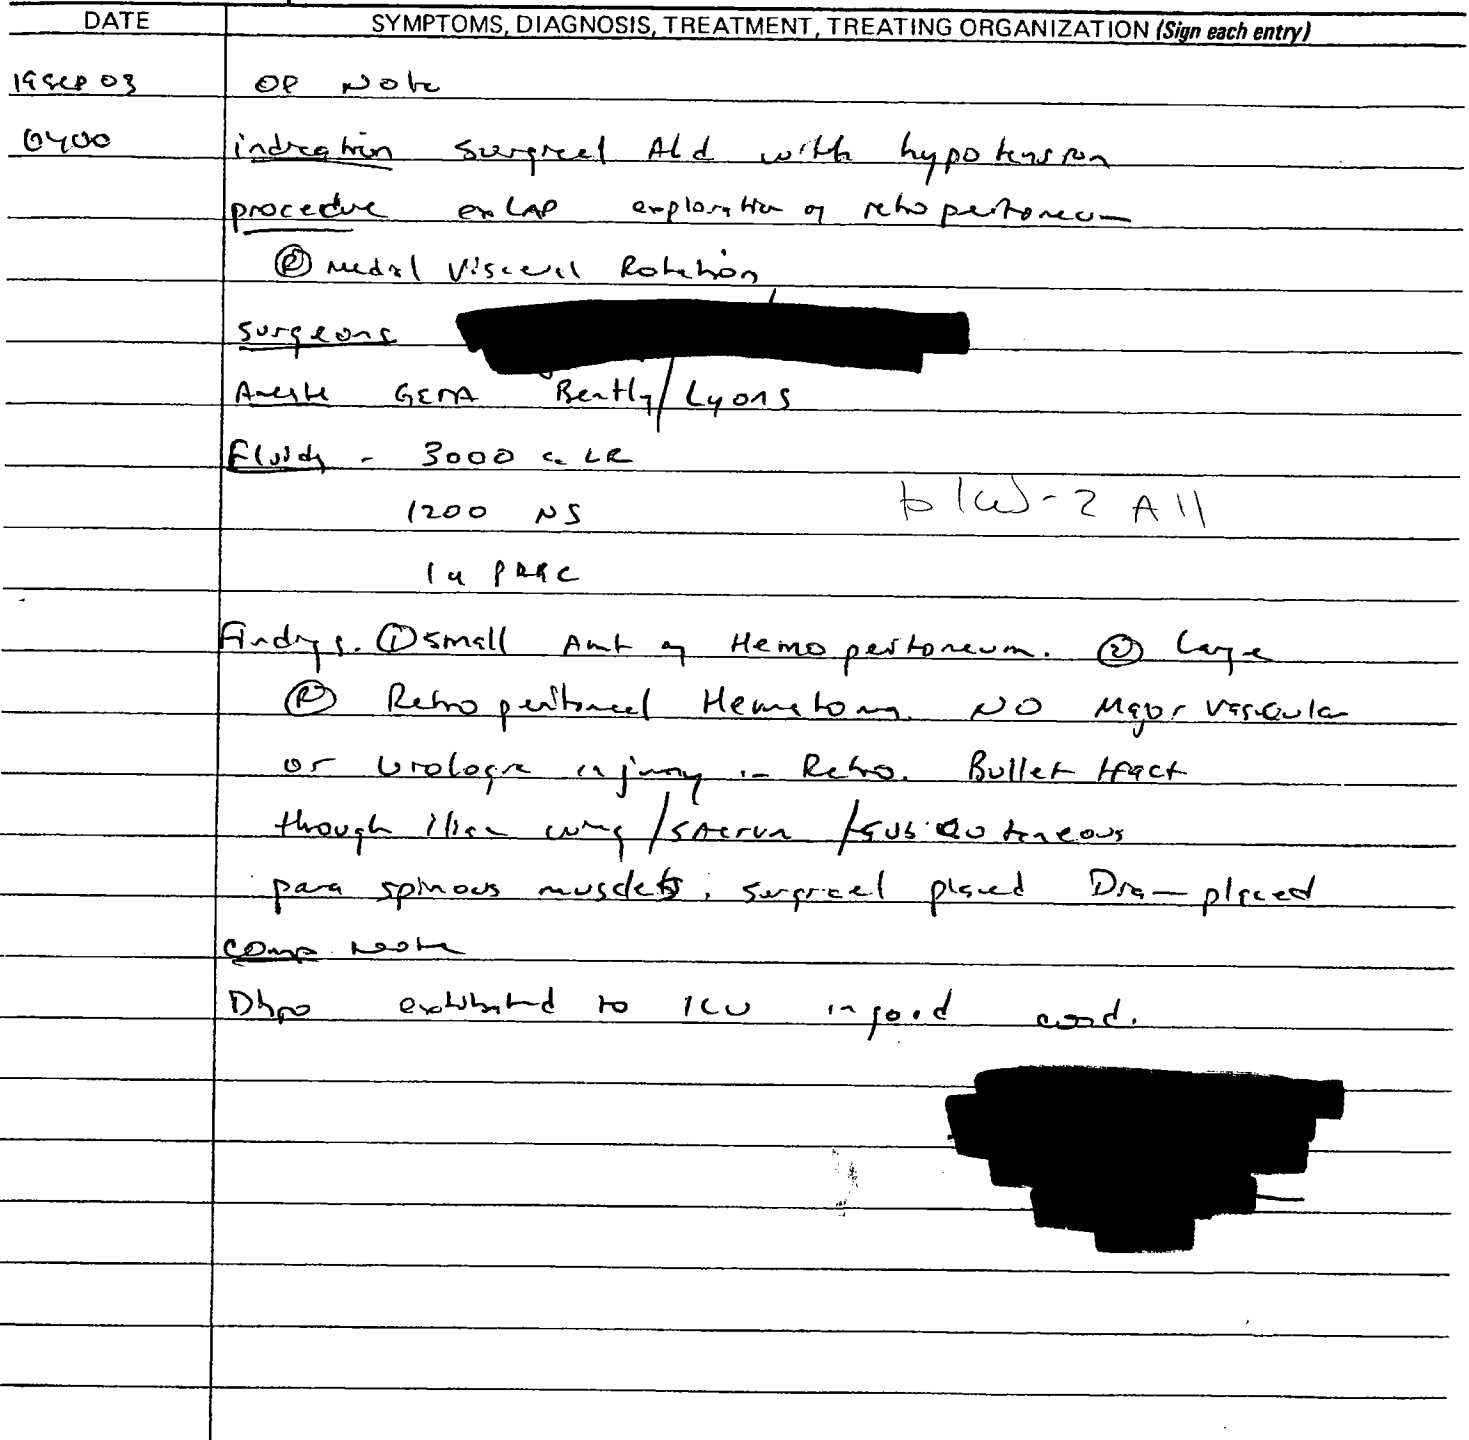 DATE SYMPTOMS, DIAGNOSIS, TREATMENT, TREATING ORGANIZATION (Sign each entry)
19 SEP 03 OP Note
0400 indication surgical Abd with hypotension
procedure exLAP exploration of retroperitoneum
Ⓡ medial Visceral Rotation
surgeons
Anesth GETA Bently/Lyons
Fluids - 3000 cc LR
1200 NS b(6)-2 All
1u PRBC
Findings. ① small Amt of Hemoperitoneum. ② Large
Ⓡ Retroperitoneal Hematoma. NO Major Vascular
or urologic injury in Retro. Bullet tract
through iliac wing/sacrum/subcutaneous
para spinous muscles. surgical placed Drain placed
comp None
Dispo extubated to ICU in good cond.